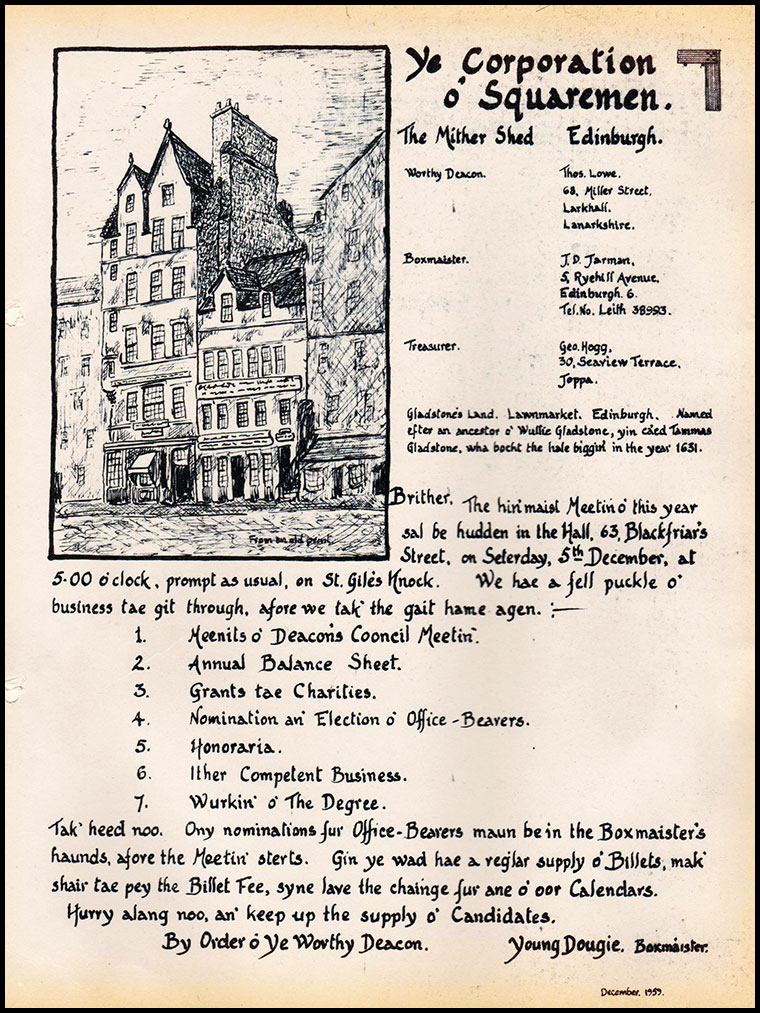 Ye Corporation
o' Squaremen.
The Mither Shed Edinburgh.
Worthy Deacon. Thos. Lowe.
68, Miller Street,
Larkhall.
Lanarkshire.
Boxmaister. J.D. Jarman,
5, Ryehill Avenue,
Edinburgh. 6.
Tel. No. Leith 38993.
Treasurer. Geo. Hogg,
30, Seaview Terrace,
Joppa.
Gladstone's Land. Lawnmarket. Edinburgh. Named
efter an ancestor o' Wullie Gladstone, yin ca'ed Tammas
Gladstone, wha bocht the hale biggin' in the year 1631.
From an old print.
Brither, The hin'maist Meetin' o' this year
sal be hudden in the Hall, 63, Blackfriar's
Street, on Seterday, 5th December, at
5.00 o'clock, prompt as usual, on St. Gile's Knock. We hae a fell puckle o'
business tae git through, afore we tak' the gait hame agen. :—
1. Meenits o' Deacon's Cooncil Meetin'.
2. Annual Balance Sheet.
3. Grants tae Charities.
4. Nomination an' Election o' Office-Bearers.
5. Honoraria.
6. Ither Competent Business.
7. Wurkin' o' The Degree.
Tak' heed noo. Ony nominations fur Office-Bearers maun be in the Boxmaister's
haunds, afore the Meetin' sterts. Gin ye wad hae a reg'lar supply o' Billets, mak'
shair tae pey the Billet Fee, syne lave the chainge fur ane o' oor Calendars.
Hurry alang noo, an' keep up the supply o' Candidates.
By Order o' Ye Worthy Deacon. Young Dougie. Boxmaister.
December. 1959.